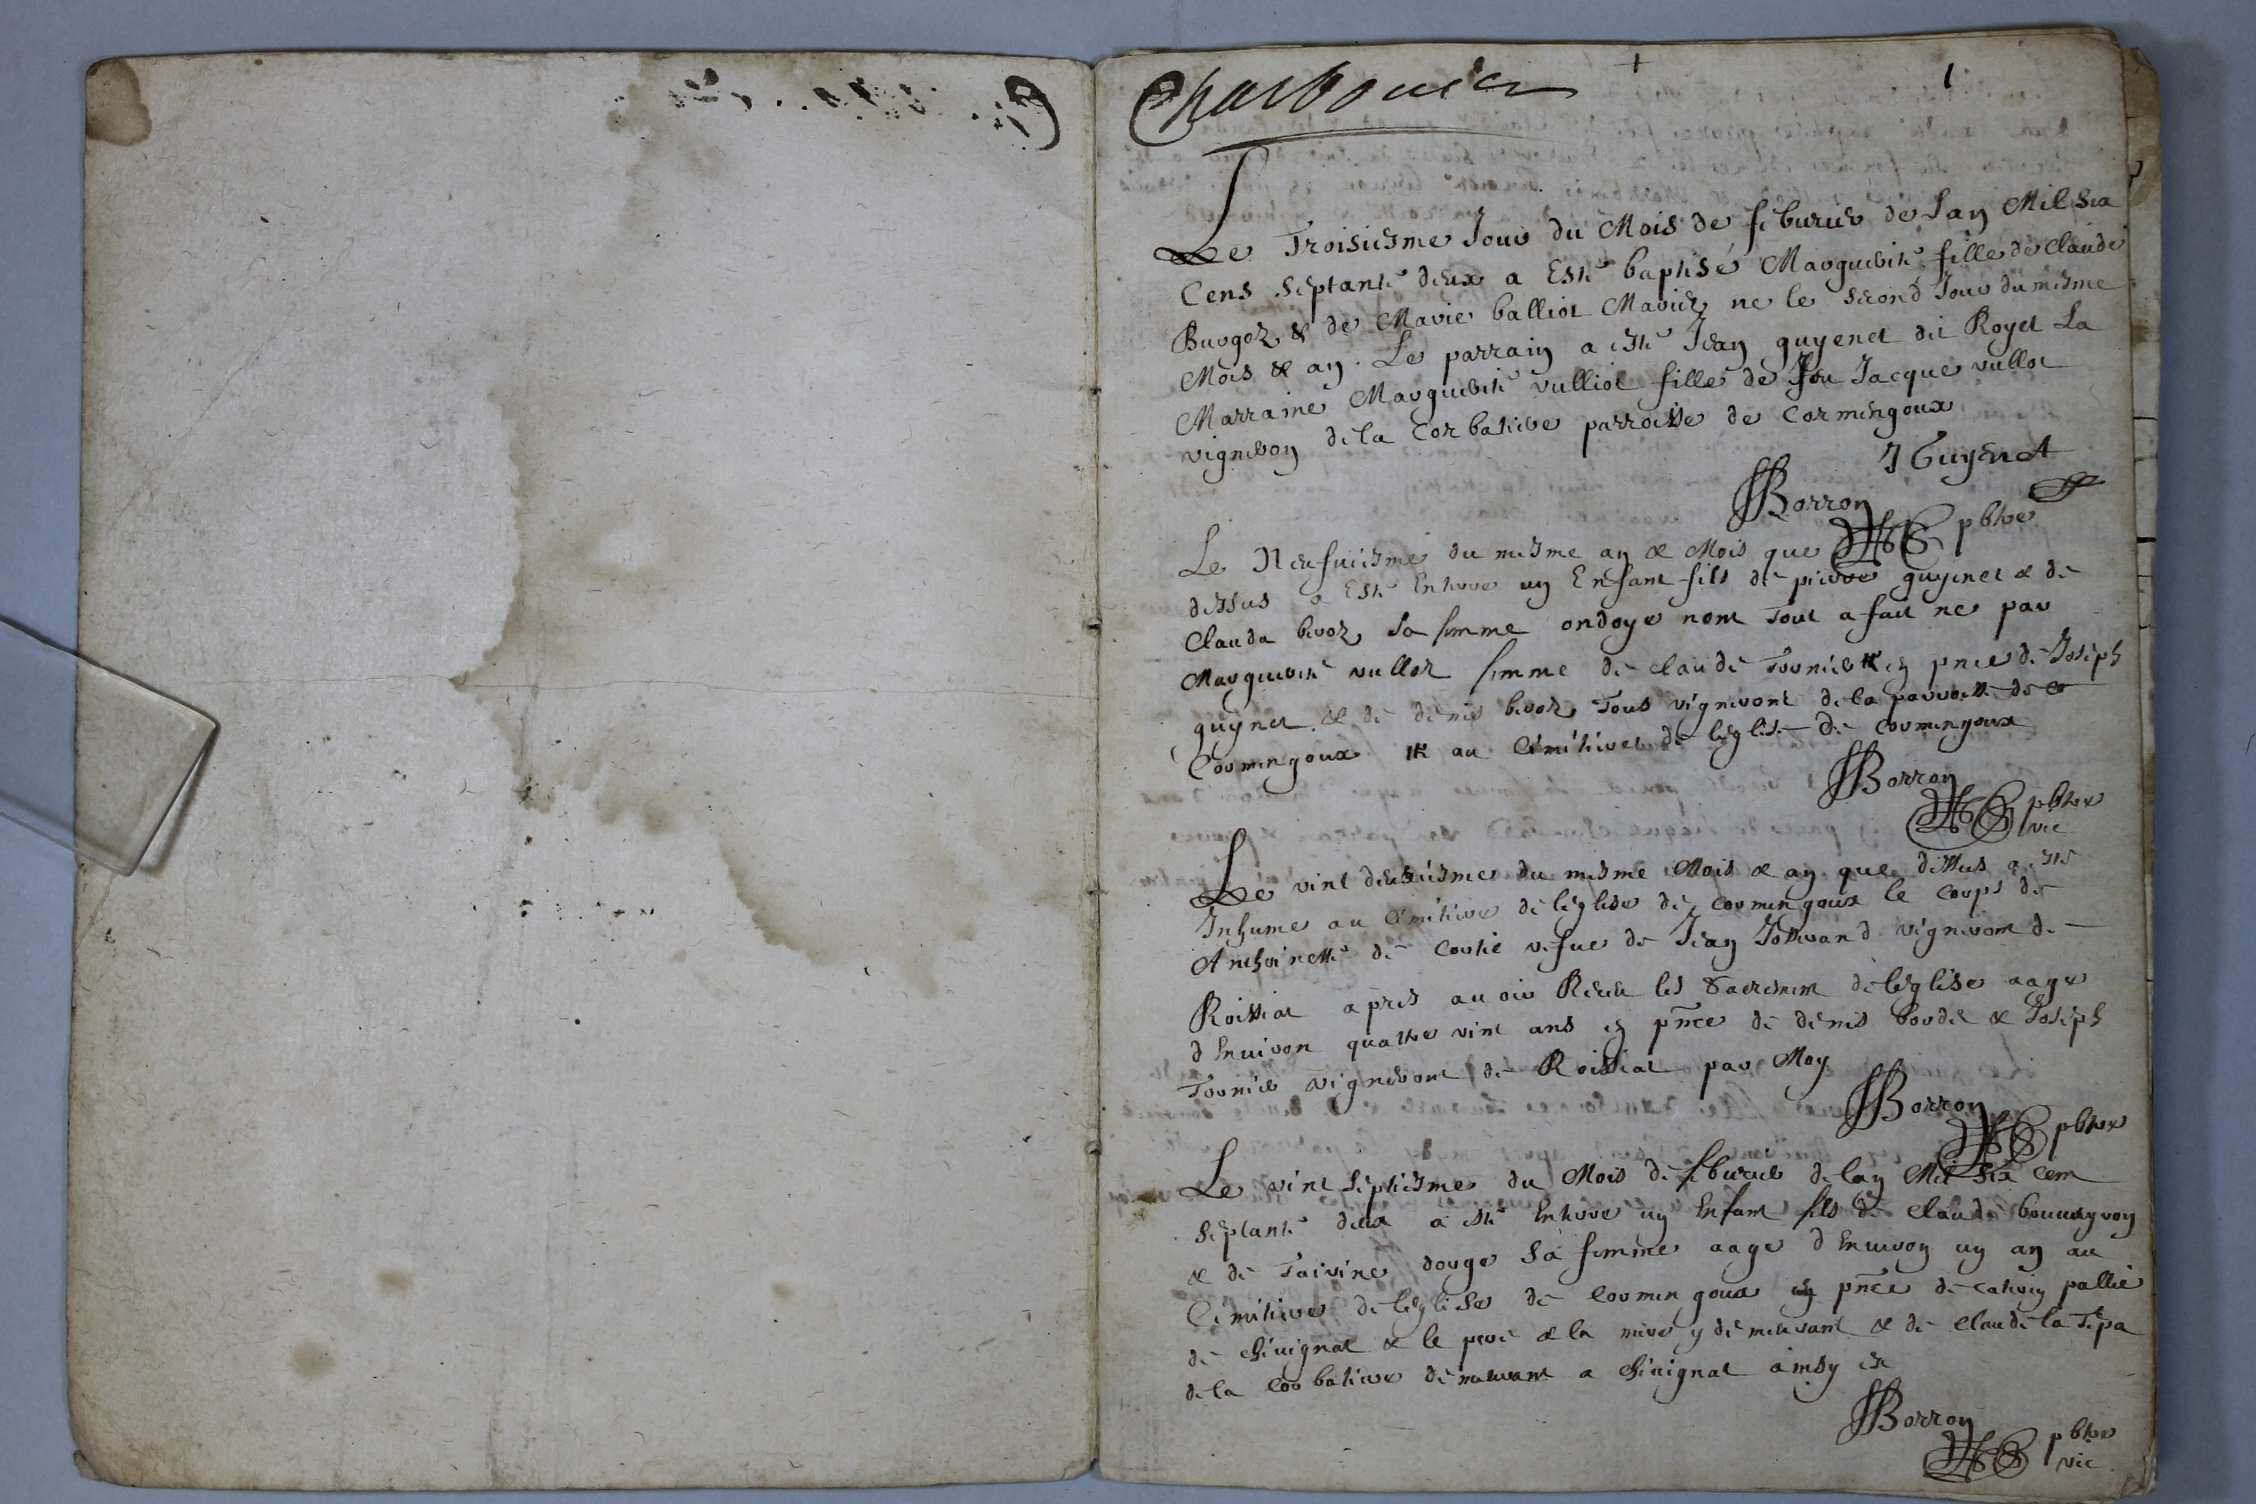 Charbonier
1
Le Troisiesme Jour du Mois de feburier de Lan Mil six
Cens septante deux a Esté baptisé Marguerite fille de Claude
Burgoz & de Marie balliot Mariez ne le second Jour du mesme
Mois & an. Le parrain a esté Jean guyenet dit Royet La
Marraine Marguerite vulliot fille de feu Jacque vullot
vigneron de la Corbatiere parroisse de Cormengoux
J Guyenet
JBorron pbtre
Le Neufuiesme du mesme an & Mois que
dessus a Esté Enterre un Enfant fils de pierre guyenet & de
Clauda broz sa femme ondoye nom Tout a fait ne par
Marguerite vulloz femme de claude Tornier en pnce de Joseph
guynet & de denis broz Tous vignerons de la parroisse de
Cormengoux au Cimitiere de leglise de Cormengoux
JBorron pbtre
vic
Le vint deusiesme du mesme Mois & an que dessus a este
Inhume au Cimitiere de leglise de Cormengoux le corps de
Anthoinette de Costie vefue de Jean Josserand vigneron de
Roissiat apres auoir Receu les Sacremens de leglise aage
d Enuiron quattre vint ans en pnce de denis bordet & Joseph
Tornier vignerons de Roissiat par Moy
JBorron pbtre
Le vint septiesme du Mois de feburier de lan Mil six cens
septante deux a esté Enterre un Enfant fils de Claude
& de Taivine douge sa femme aage d Enuiron un an au
Cimitiere de leglise de Cormengoux en pnce de catrin pallie
de chiuignat & le pere & la mere y demeurant & de claude la Tepa
de la Corbatiere demeurant a chiuignat ainsy est
JBorron pbtre
vic